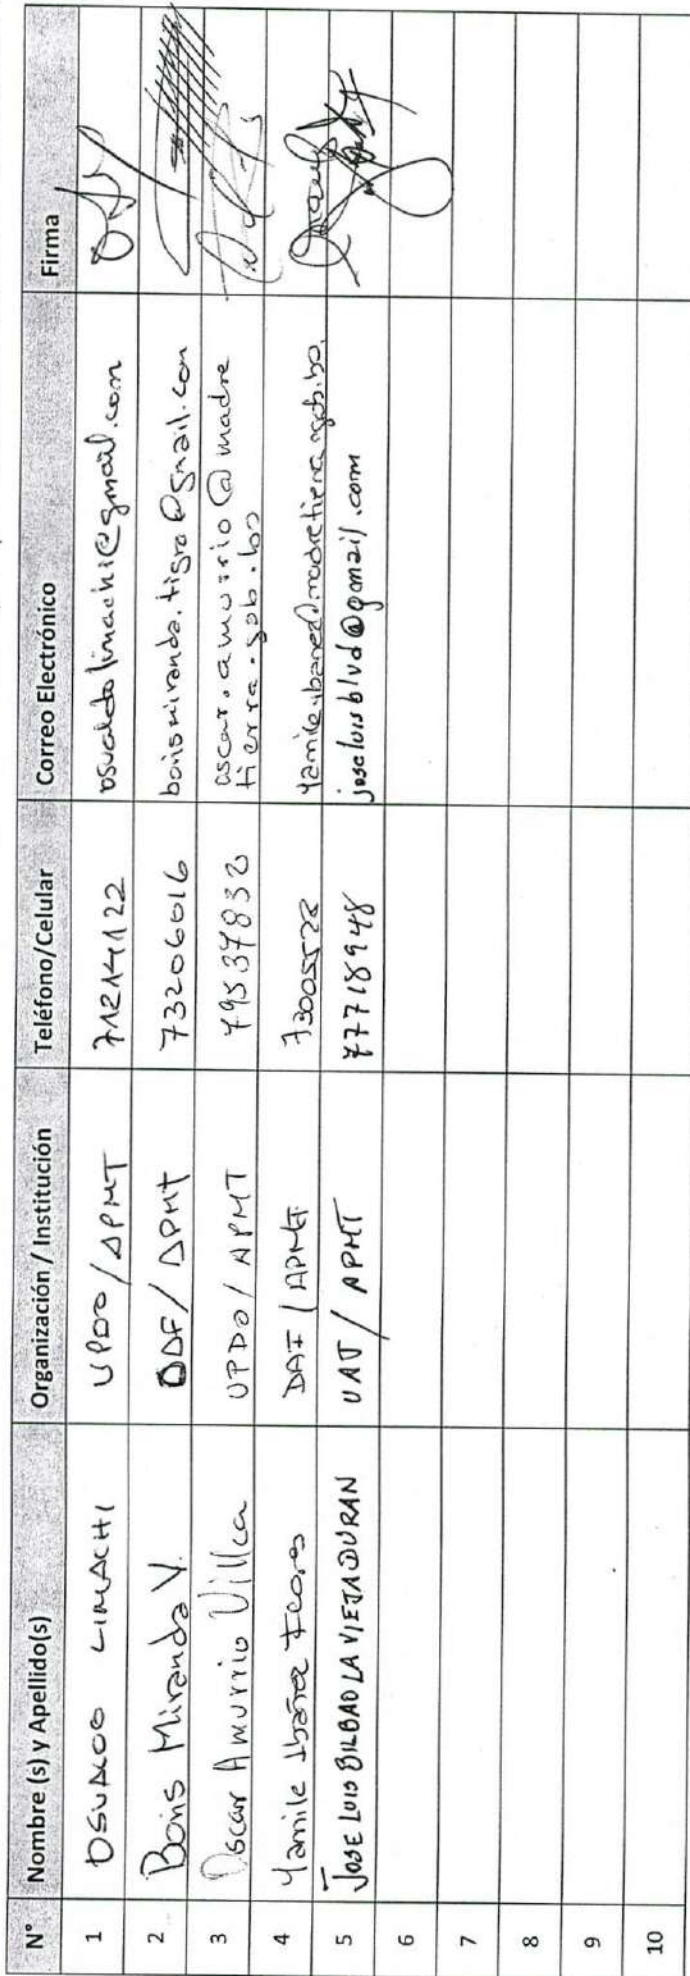 N° Nombre (s) y Apellido(s) Organización / Institución Teléfono/Celular Correo Electrónico Firma
1 OSVALDO LIMACHI UPDO / APMT 71214122 osvaldolimachi@gmail.com
2 Boris Miranda V. DAF / APMT 73206016 borismiranda.tigro@gmail.com
3 Oscar Amurrio Villca UPDO / APMT 79537832 oscar.amurrio@madre
tierra.gob.bo
4 Yamile Ibañez DAF / APMT 73005578
5 JOSE LUIS BILBAO LA VIEJA DURAN UAJ / APMT 77718948 joseluisblvd@gmail.com
6
7
8
9
10